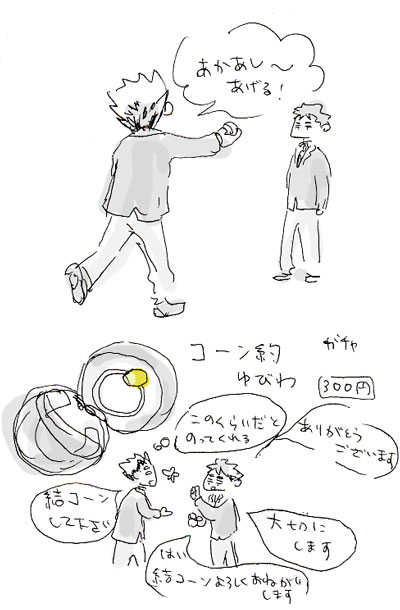 あかあし〜
あげる!
コーン約
ゆびわ
ガチャ
300円
このくらいだと
のってくれる
ありがとう
ございます
結コーン
して下さい
大切に
します
はい
結コーンよろしくおねがい
します